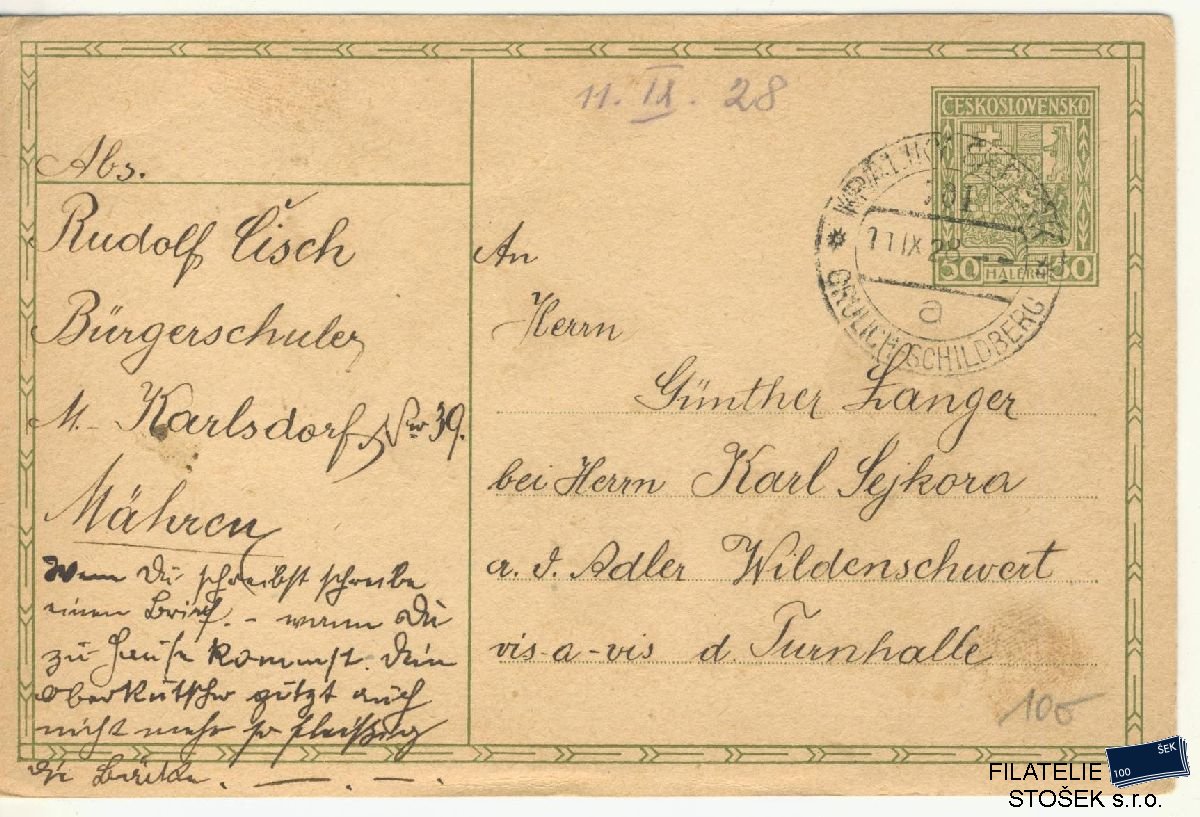 11. IX. 28
ČESKOSLOVENSKO
50 HALÉŘŮ 50
11 IX 28
a
GRULICH-SCHILDBERG
Abs.
Rudolf Čisch
Bürgerschuler
M. Karlsdorf Nr 39.
Mähren
Wenn Du schreibst schreibe
einen Brief. – wann Du
zu Hause kommst. Dein
Oberkutscher putzt auch
nicht mehr so fleißig
die
An
Herrn
Günther Langer
bei Herrn Karl Sejkora
a. d. Adler Wildenschwert
vis-a-vis d. Turnhalle
100
FILATELIE
STOŠEK s.r.o.
100 ŠEK